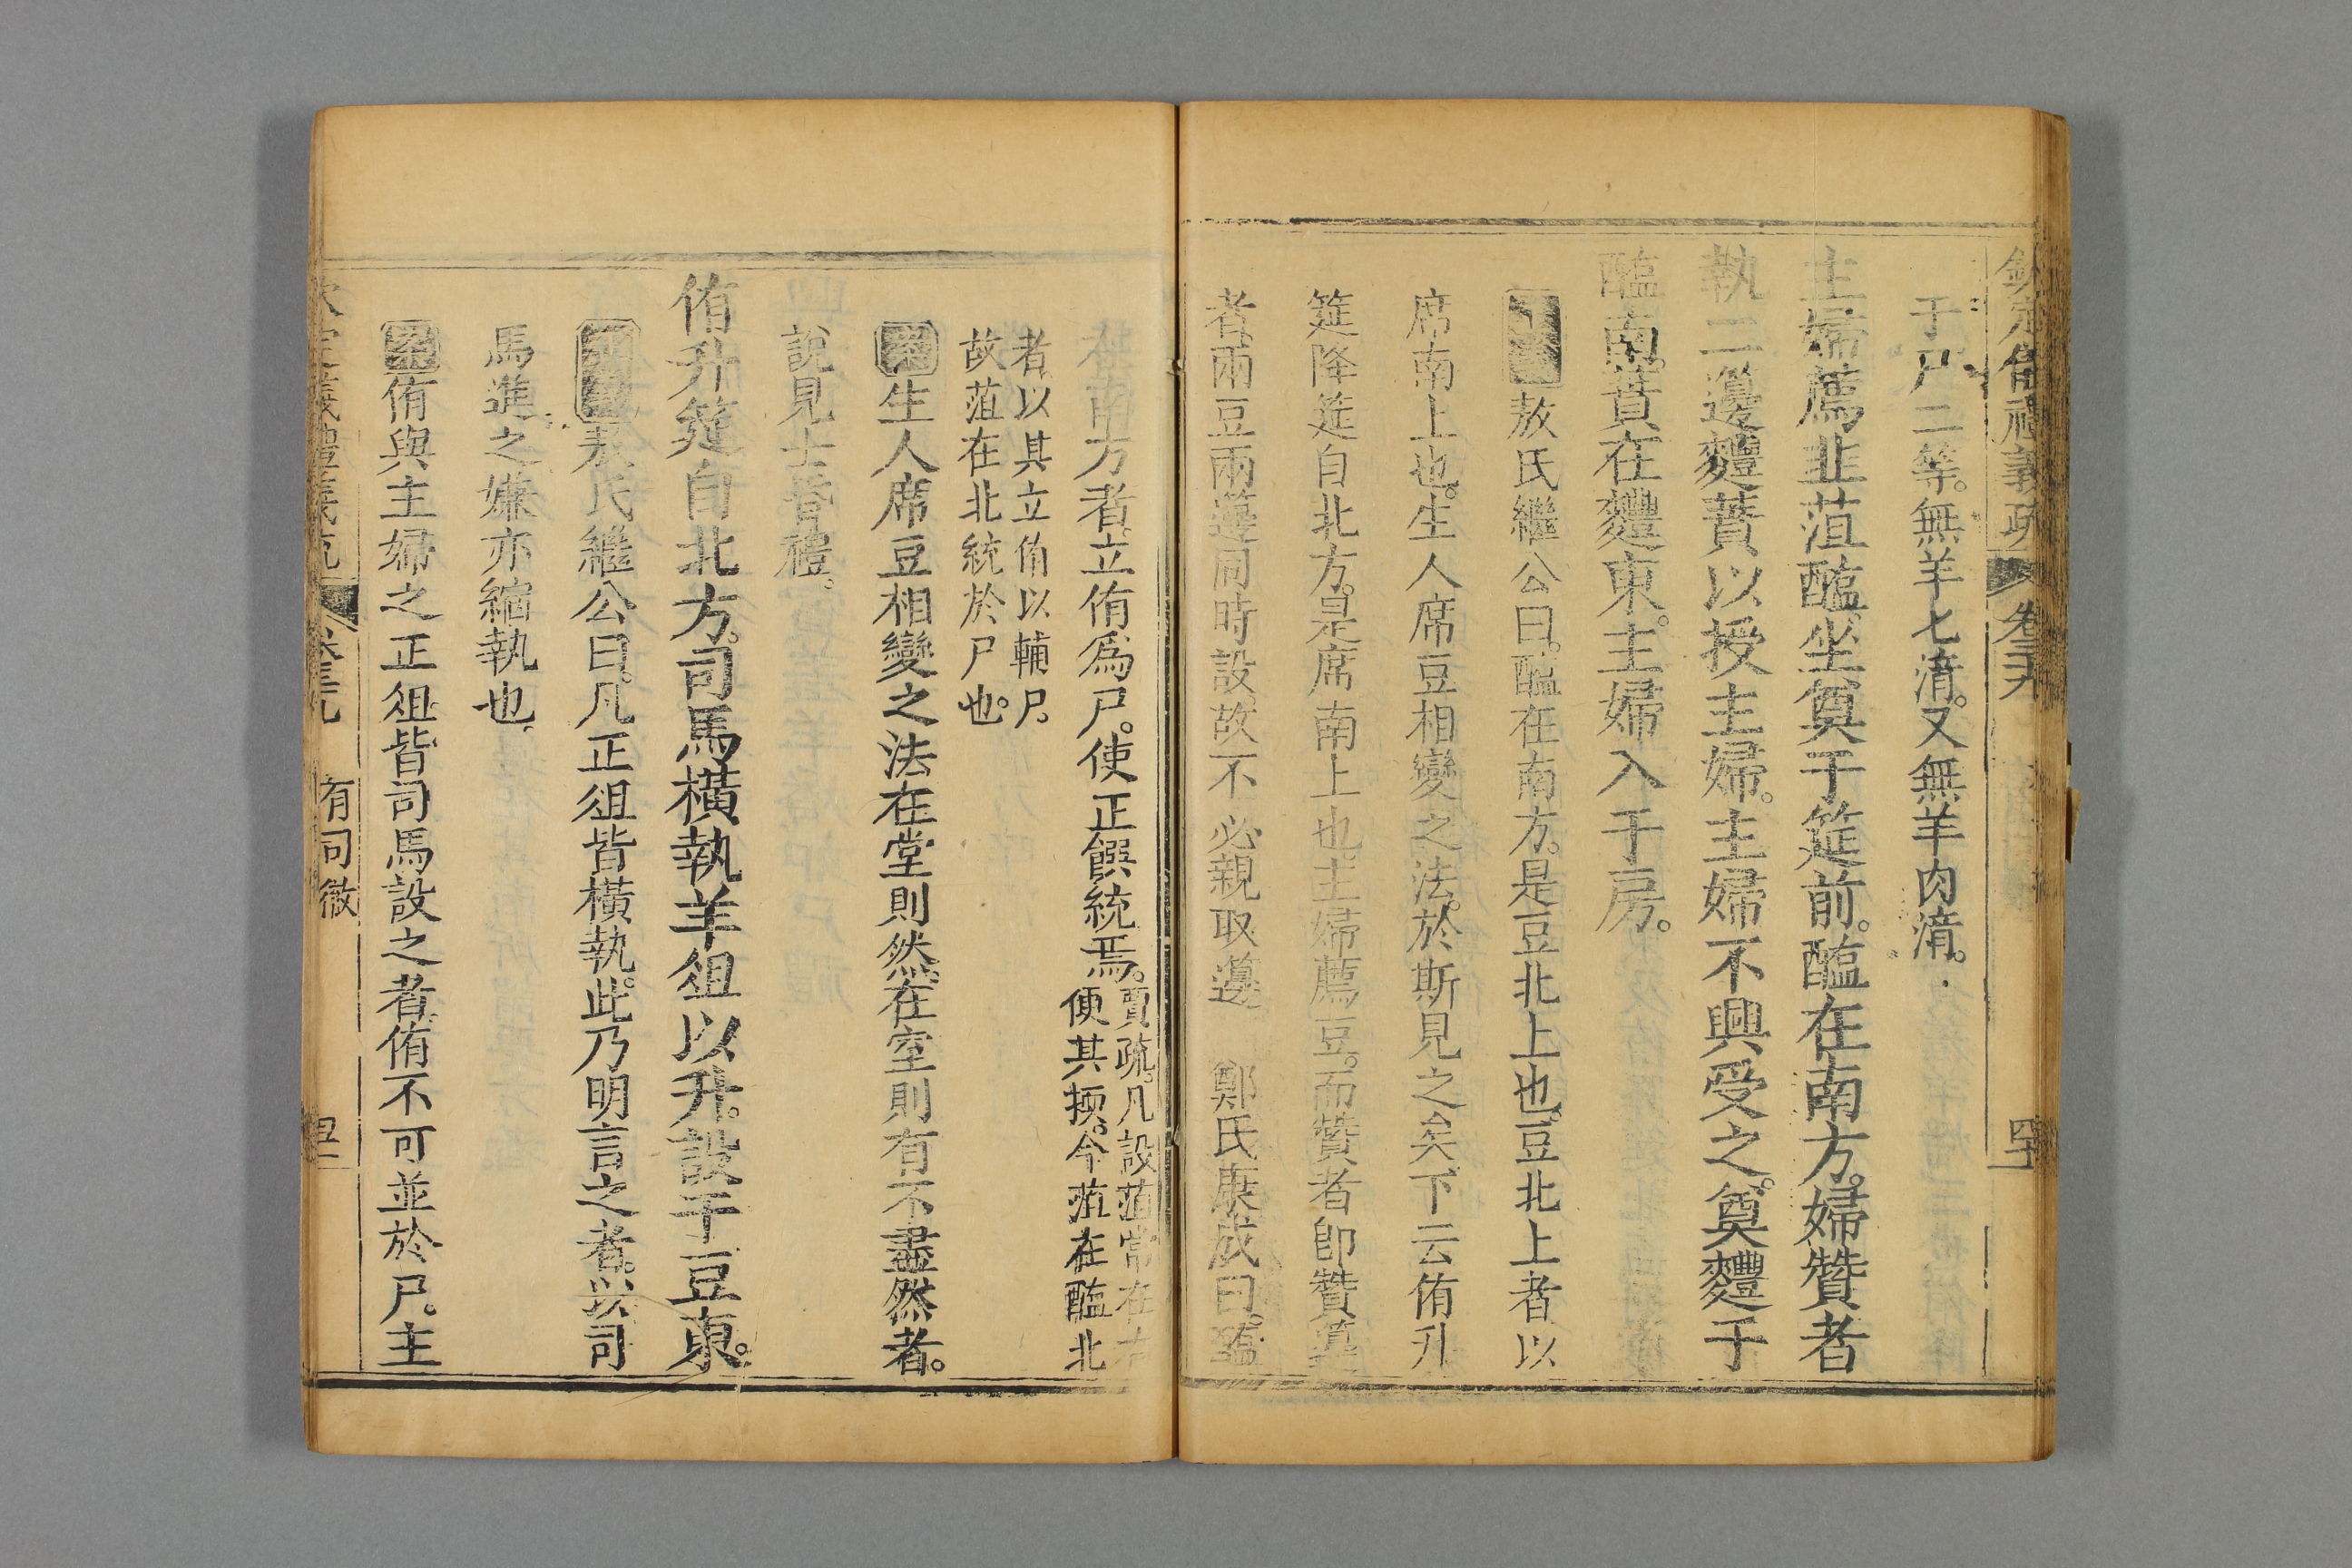 欽定儀禮義疏 卷三十九
于尸二等。無羊匕湇。又無羊肉湇。
主婦薦韭菹醢。坐奠于筵前。醢在南方。婦贊者
執二籩麷蕡以授主婦。主婦不興受之。奠麷于
醢南。蕡在麷東。主婦入于房。
敖氏繼公曰。醢在南方。是豆北上也。豆北上者以
席南上也。生人席豆相變之法。於斯見之矣下云侑升
筵降筵自北方。是席南上也主婦薦豆。而贊者卽贊奠
者。兩豆兩籩同時設。故不必親取籩 鄭氏康成曰。醢
在南方者。立侑爲尸。使正饌統焉。賈疏。凡設菹常在右
便其㨎。今菹在醢北
者以其立侑以輔尸。
故菹在北統於尸也。
案生人席豆相變之法。在堂則然。在室則有不盡然者。
說見士昏禮。
侑升筵自北方。司馬橫執羊俎以升。設于豆東。
敖氏繼公曰。凡正俎皆橫執。此乃明言之者。以司
馬進之嫌亦縮執也
案侑與主婦之正俎皆司馬設之者。侑不可並於尸。主
欽定儀禮義疏 卷三十九 有司徹